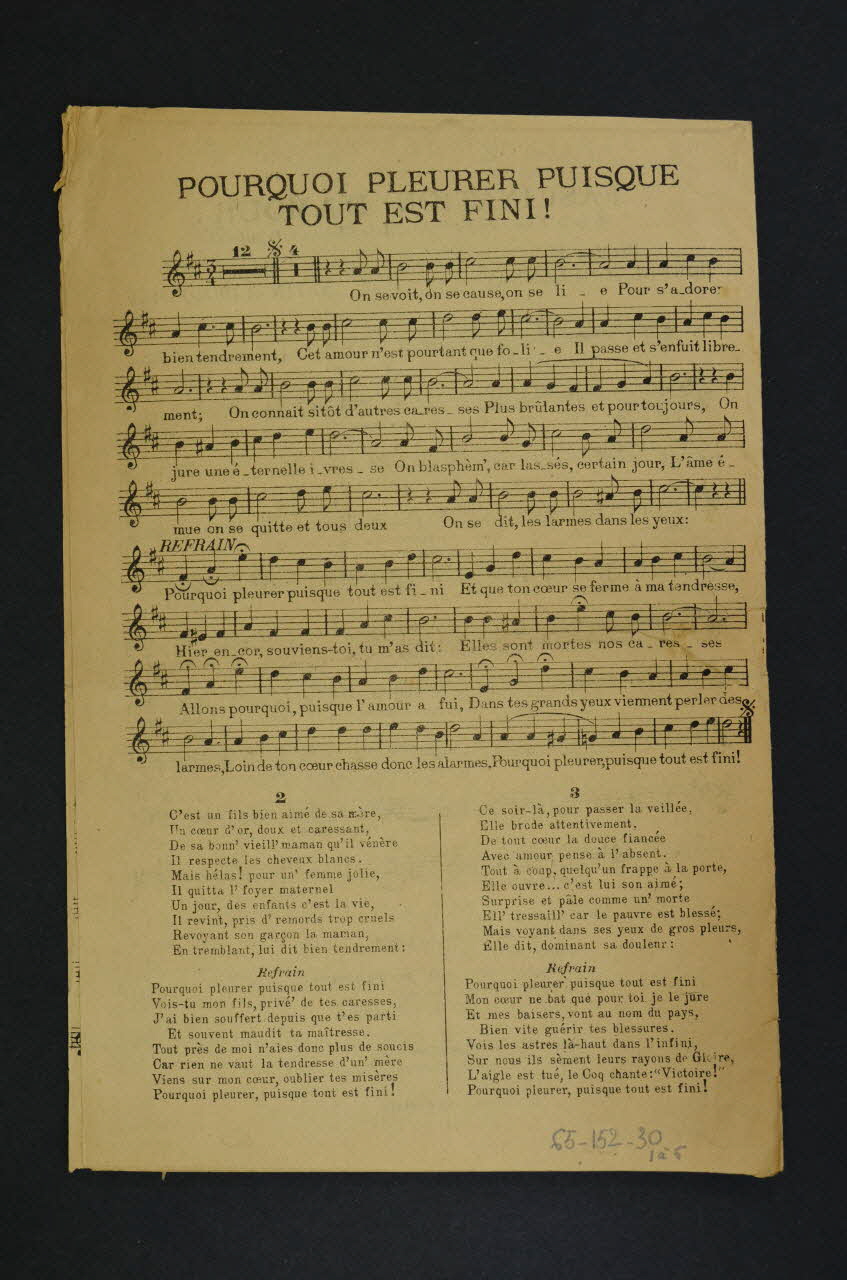 POURQUOI PLEURER PUISQUE
TOUT EST FINI!
12 4
On se voit, on se cause, on se li - e Pour s'a-dorer
bien tendrement, Cet amour n'est pourtant que fo-li - e Il passe et s'enfuit libre-
ment; On connait sitôt d'autres ca-res - ses Plus brûlantes et pour toujours, On
jure une é-ternelle i-vres - se On blasphèm', car las-sés, certain jour, L'âme é -
mue on se quitte et tous deux On se dit, les larmes dans les yeux:
REFRAIN
Pourquoi pleurer puisque tout est fi-ni Et que ton cœur se ferme à ma tendresse,
Hier en-cor, souviens-toi, tu m'as dit: Elles sont mortes nos ca-res-ses
Allons pourquoi, puisque l'amour a fui, Dans tes grands yeux viennent perler des
larmes, Loin de ton cœur chasse donc les alarmes, Pourquoi pleurer, puisque tout est fini!
2
C'est un fils bien aimé de sa mère,
Un cœur d'or, doux et caressant,
De sa bonn' vieill' maman qu'il vénère
Il respecte les cheveux blancs.
Mais hélas! pour un' femme jolie,
Il quitta l' foyer maternel
Un jour, des enfants c'est la vie,
Il revint, pris d' remords trop cruels
Revoyant son garçon la maman,
En tremblant, lui dit bien tendrement:
Refrain
Pourquoi pleurer puisque tout est fini
Vois-tu mon fils, privé' de tes caresses,
J'ai bien souffert depuis que t'es parti
Et souvent maudit ta maîtresse.
Tout près de moi n'aies donc plus de soucis
Car rien ne vaut la tendresse d'un' mère
Viens sur mon cœur, oublier tes misères
Pourquoi pleurer, puisque tout est fini!
3
Ce soir-là, pour passer la veillée,
Elle brode attentivement.
De tout cœur la douce fiancée
Avec amour pense à l'absent.
Tout à coup, quelqu'un frappe à la porte,
Elle ouvre... c'est lui son aimé;
Surprise et pâle comme un' morte
Ell' tressaill' car le pauvre est blessé;
Mais voyant dans ses yeux de gros pleurs,
Elle dit, dominant sa douleur:
Refrain
Pourquoi pleurer puisque tout est fini
Mon cœur ne bat que pour toi je le jure
Et mes baisers, vont au nom du pays,
Bien vite guérir tes blessures.
Vois les astres là-haut dans l'infini,
Sur nous ils sèment leurs rayons de Gloire,
L'aigle est tué, le Coq chante: "Victoire!"
Pourquoi pleurer, puisque tout est fini!
65-152-30
1 à 5